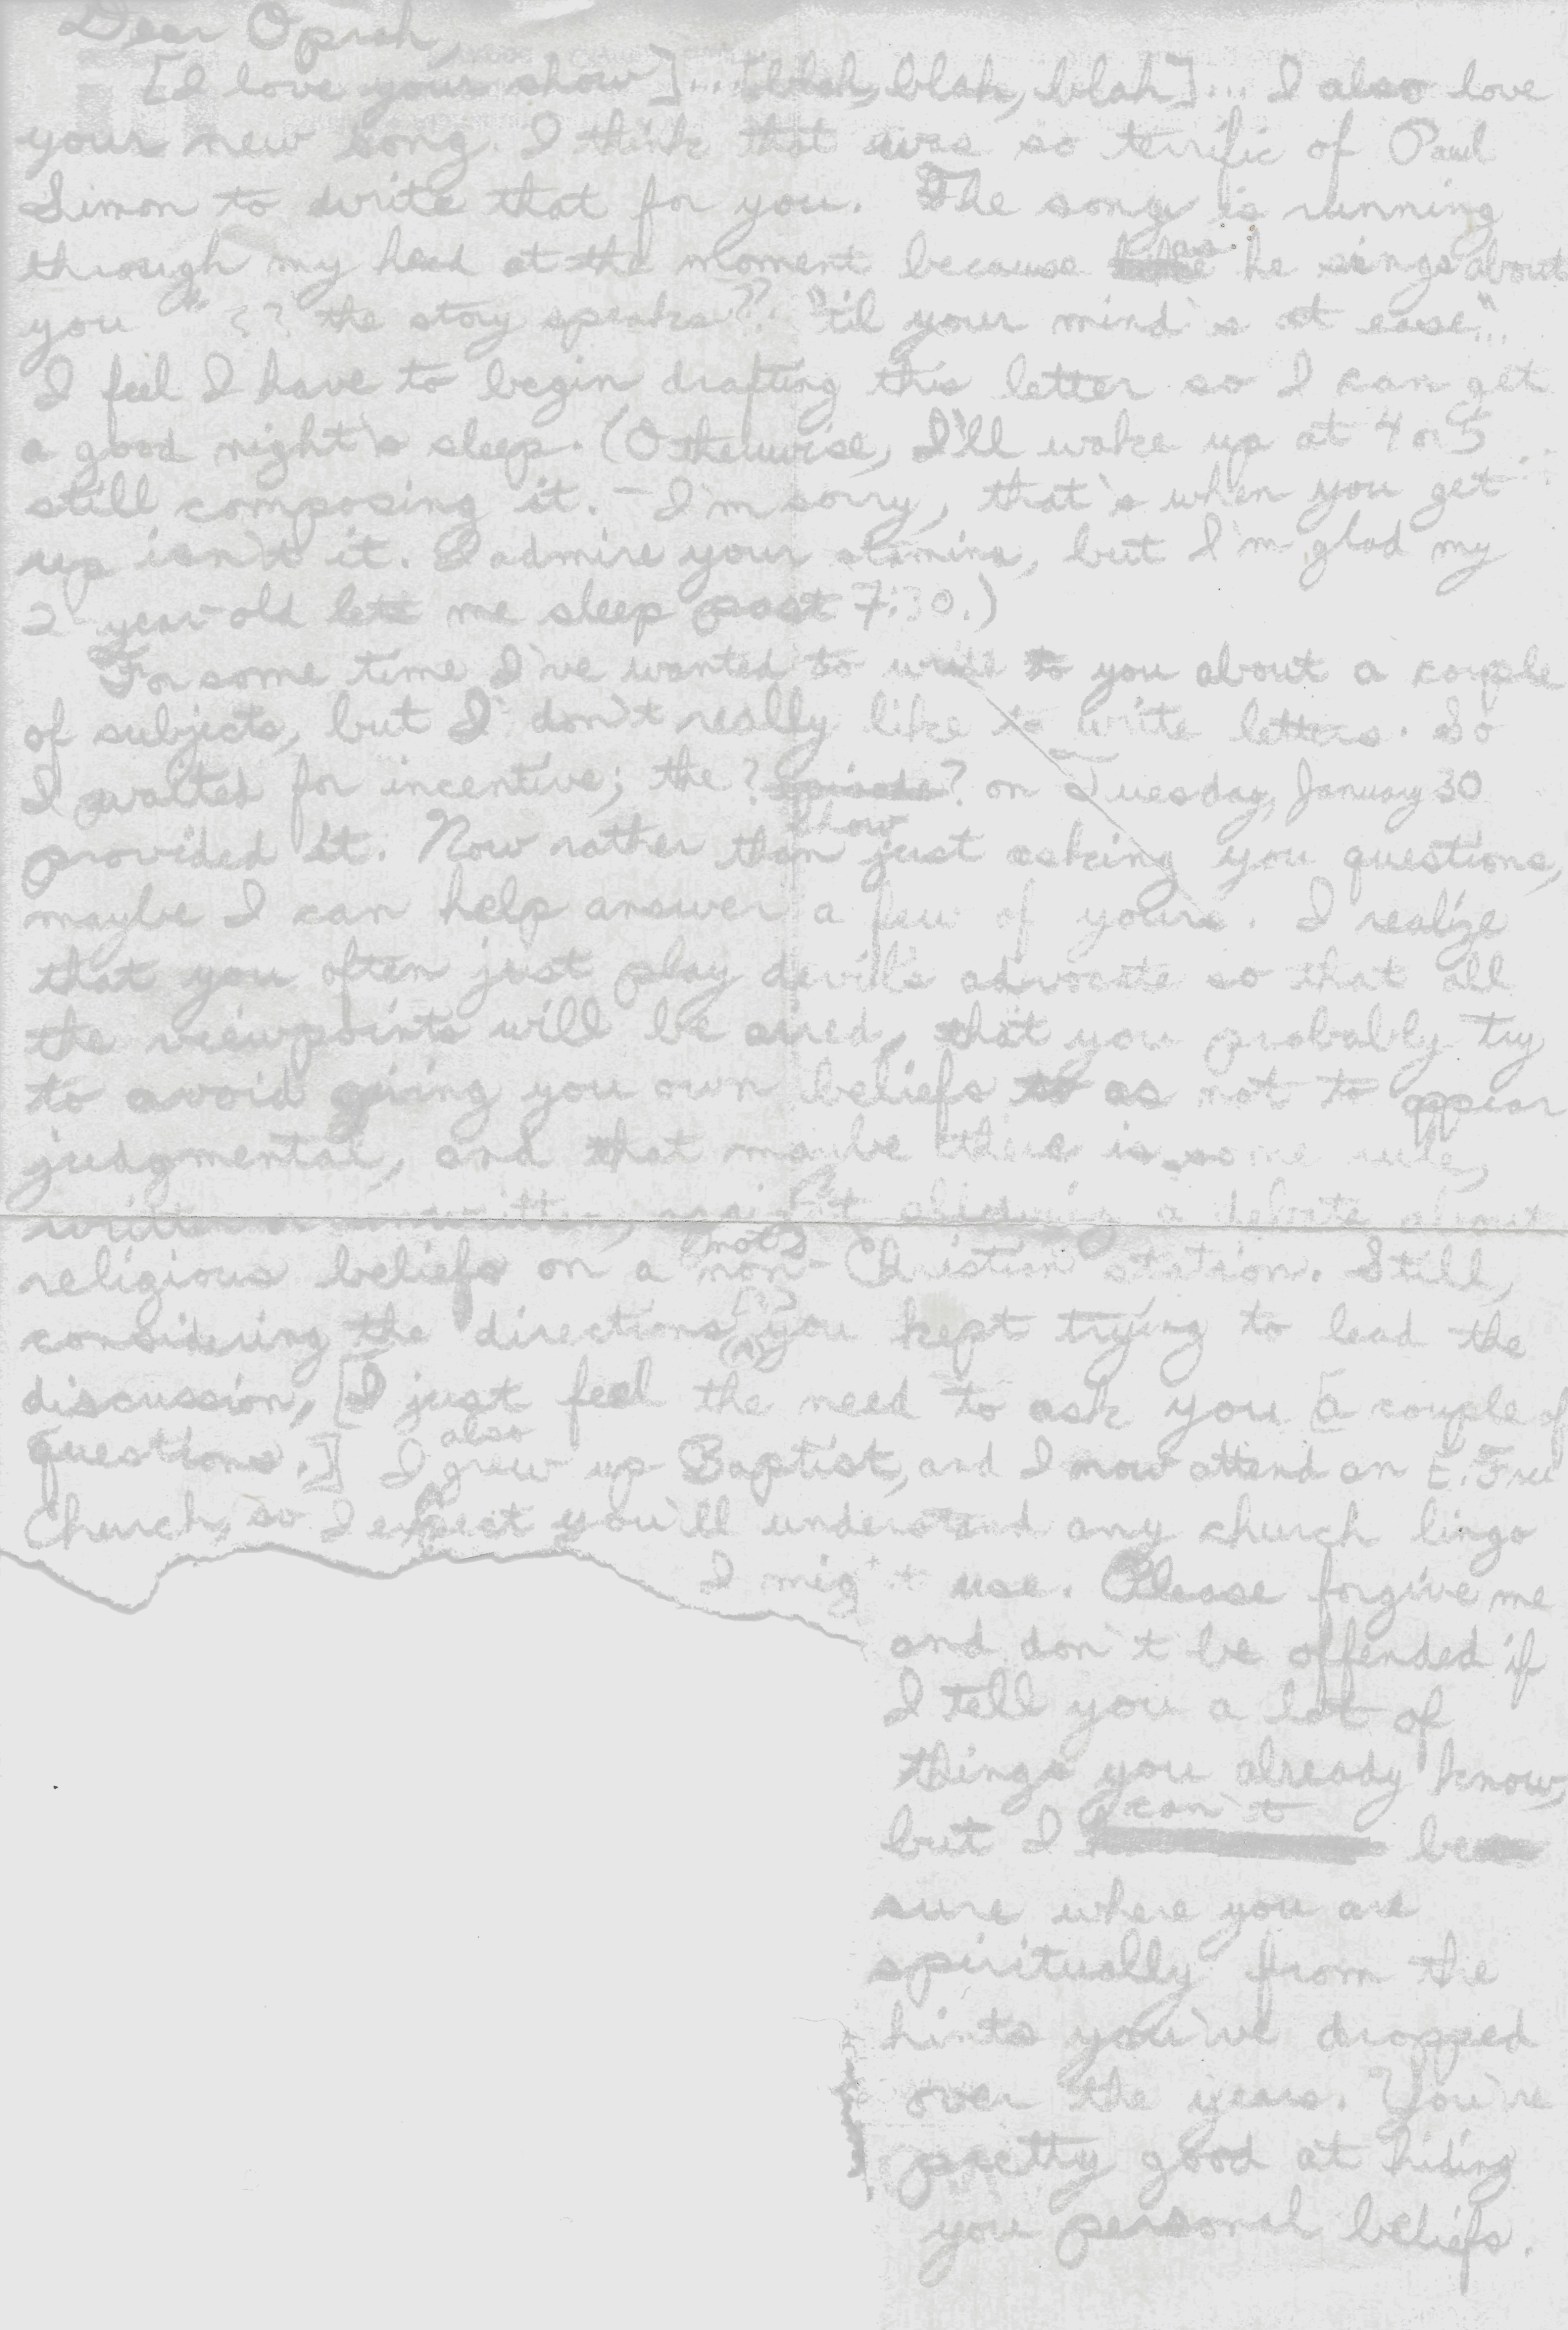 Dear Oprah,
[I love your show]... [blah, blah, blah]... I also love
your new song. I think that was so terrific of Paul
Simon to write that for you. The song is running
through my head at the moment because as he sings about
you " ?? the story speaks?? "'til your mind's at ease"...
I feel I have to begin drafting this letter so I can get
a good night's sleep. (Otherwise, I'll wake up at 4 or 5
still composing it. - I'm sorry, that's when you get
up isn't it. I admire your stamina, but I'm glad my
2 year-old lets me sleep past 7:30.)
For some time I've wanted to write to you about a couple
of subjects, but I don't really like to write letters. So
I waited for incentive; the ? Episode? on Tuesday, January 30
show
provided it. Now rather than just asking you questions,
maybe I can help answer a few of yours. I realize
that you often just play devil's advocate so that all
the viewpoints will be aired, that you probably try
to avoid giving you own beliefs so as not to appear
judgmental, and that maybe there is some rule,
written or unwritten, against allowing a debate about
religious beliefs on a non- Christian station. Still,
considering the directions you kept trying to lead the
discussion, [I just feel the need to ask you a couple of
questions.] I also grew up Baptist, and I now attend an E. Free
Church, so I expect you'll understand any church lingo
I might use. Please forgive me
and don't be offended if
I tell you a lot of
things you already know,
but I can't be
sure where you are
spiritually from the
hints you've dropped
over the years. You're
pretty good at hiding
you personal beliefs.